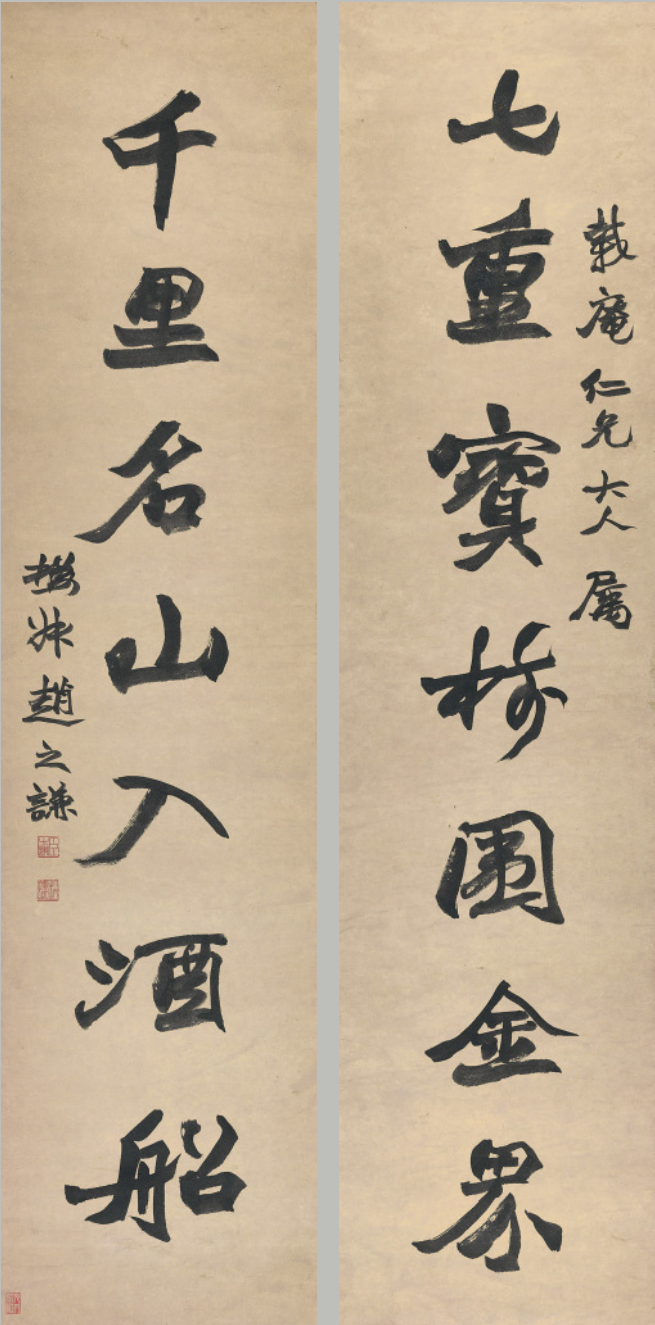 載庵仁兄大人屬
七重寶樹圍金界
千里名山入酒船
撝叔趙之謙